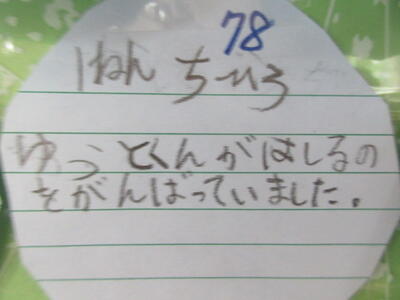 78
1ねん ちひろ
ゆうとくんがはしるの
をがんばっていました。